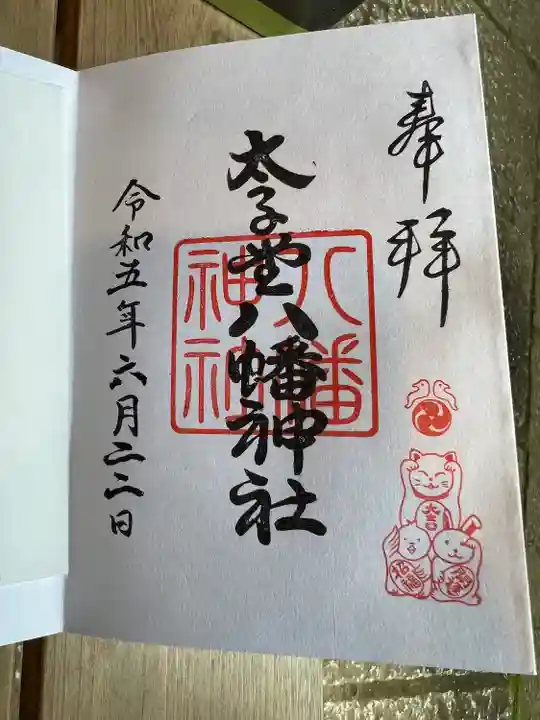 奉拝
太子堂八幡神社
八幡
神社
令和五年六月二二日
大吉